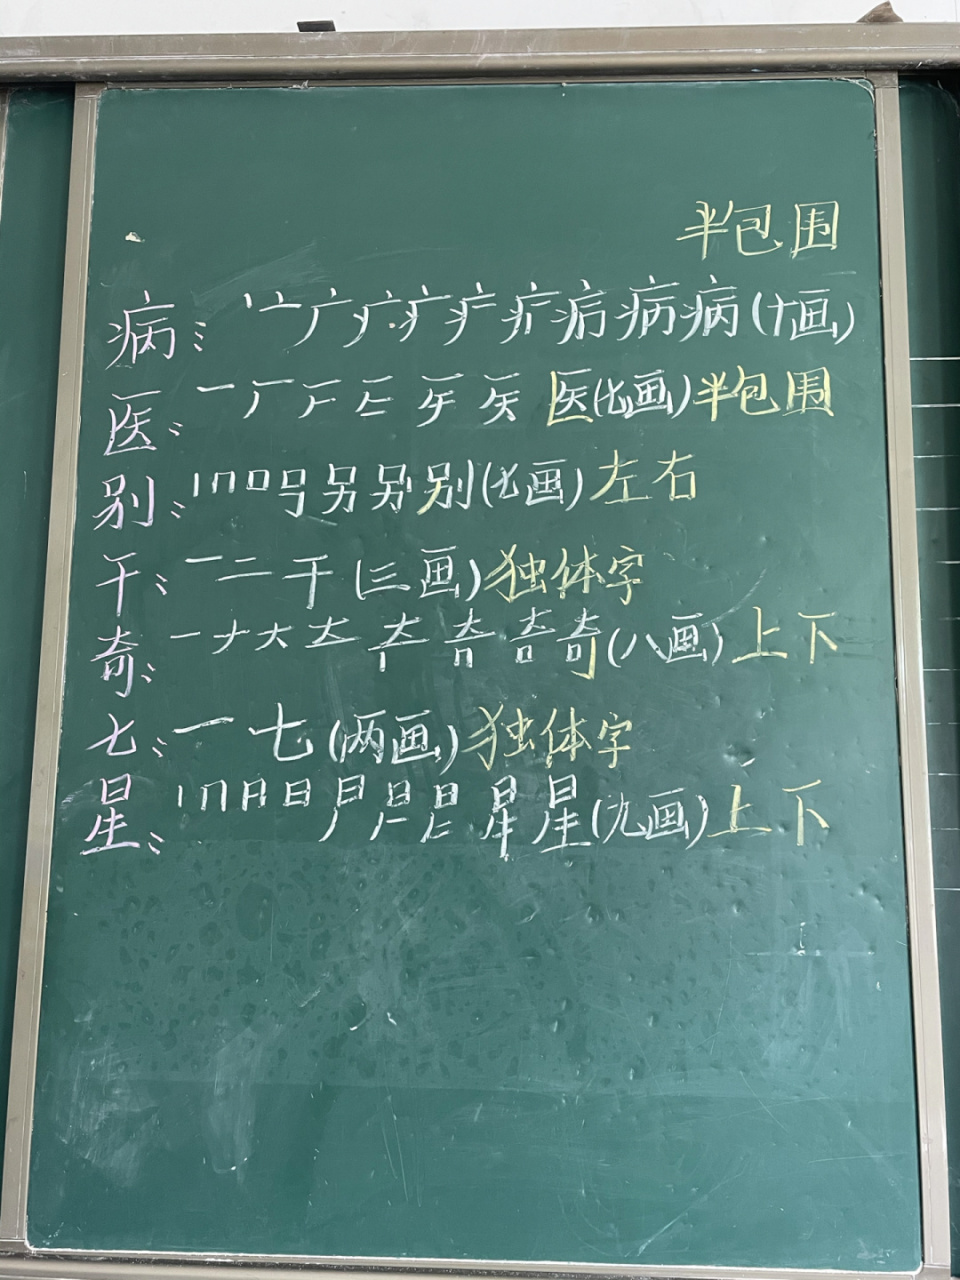 半包围
病：丶 亠 广 疒 疒 疒 疒 病 病 病（十画）
医：一 丆 医（七画）半包围
别：丨 冂 口 号 另 别 别（七画）左右
干：一 二 干（三画）独体字
奇：一 ナ 大 奇（八画）上下
七：一 七（两画）独体字
星：丨 冂 日 日 星 星（九画）上下